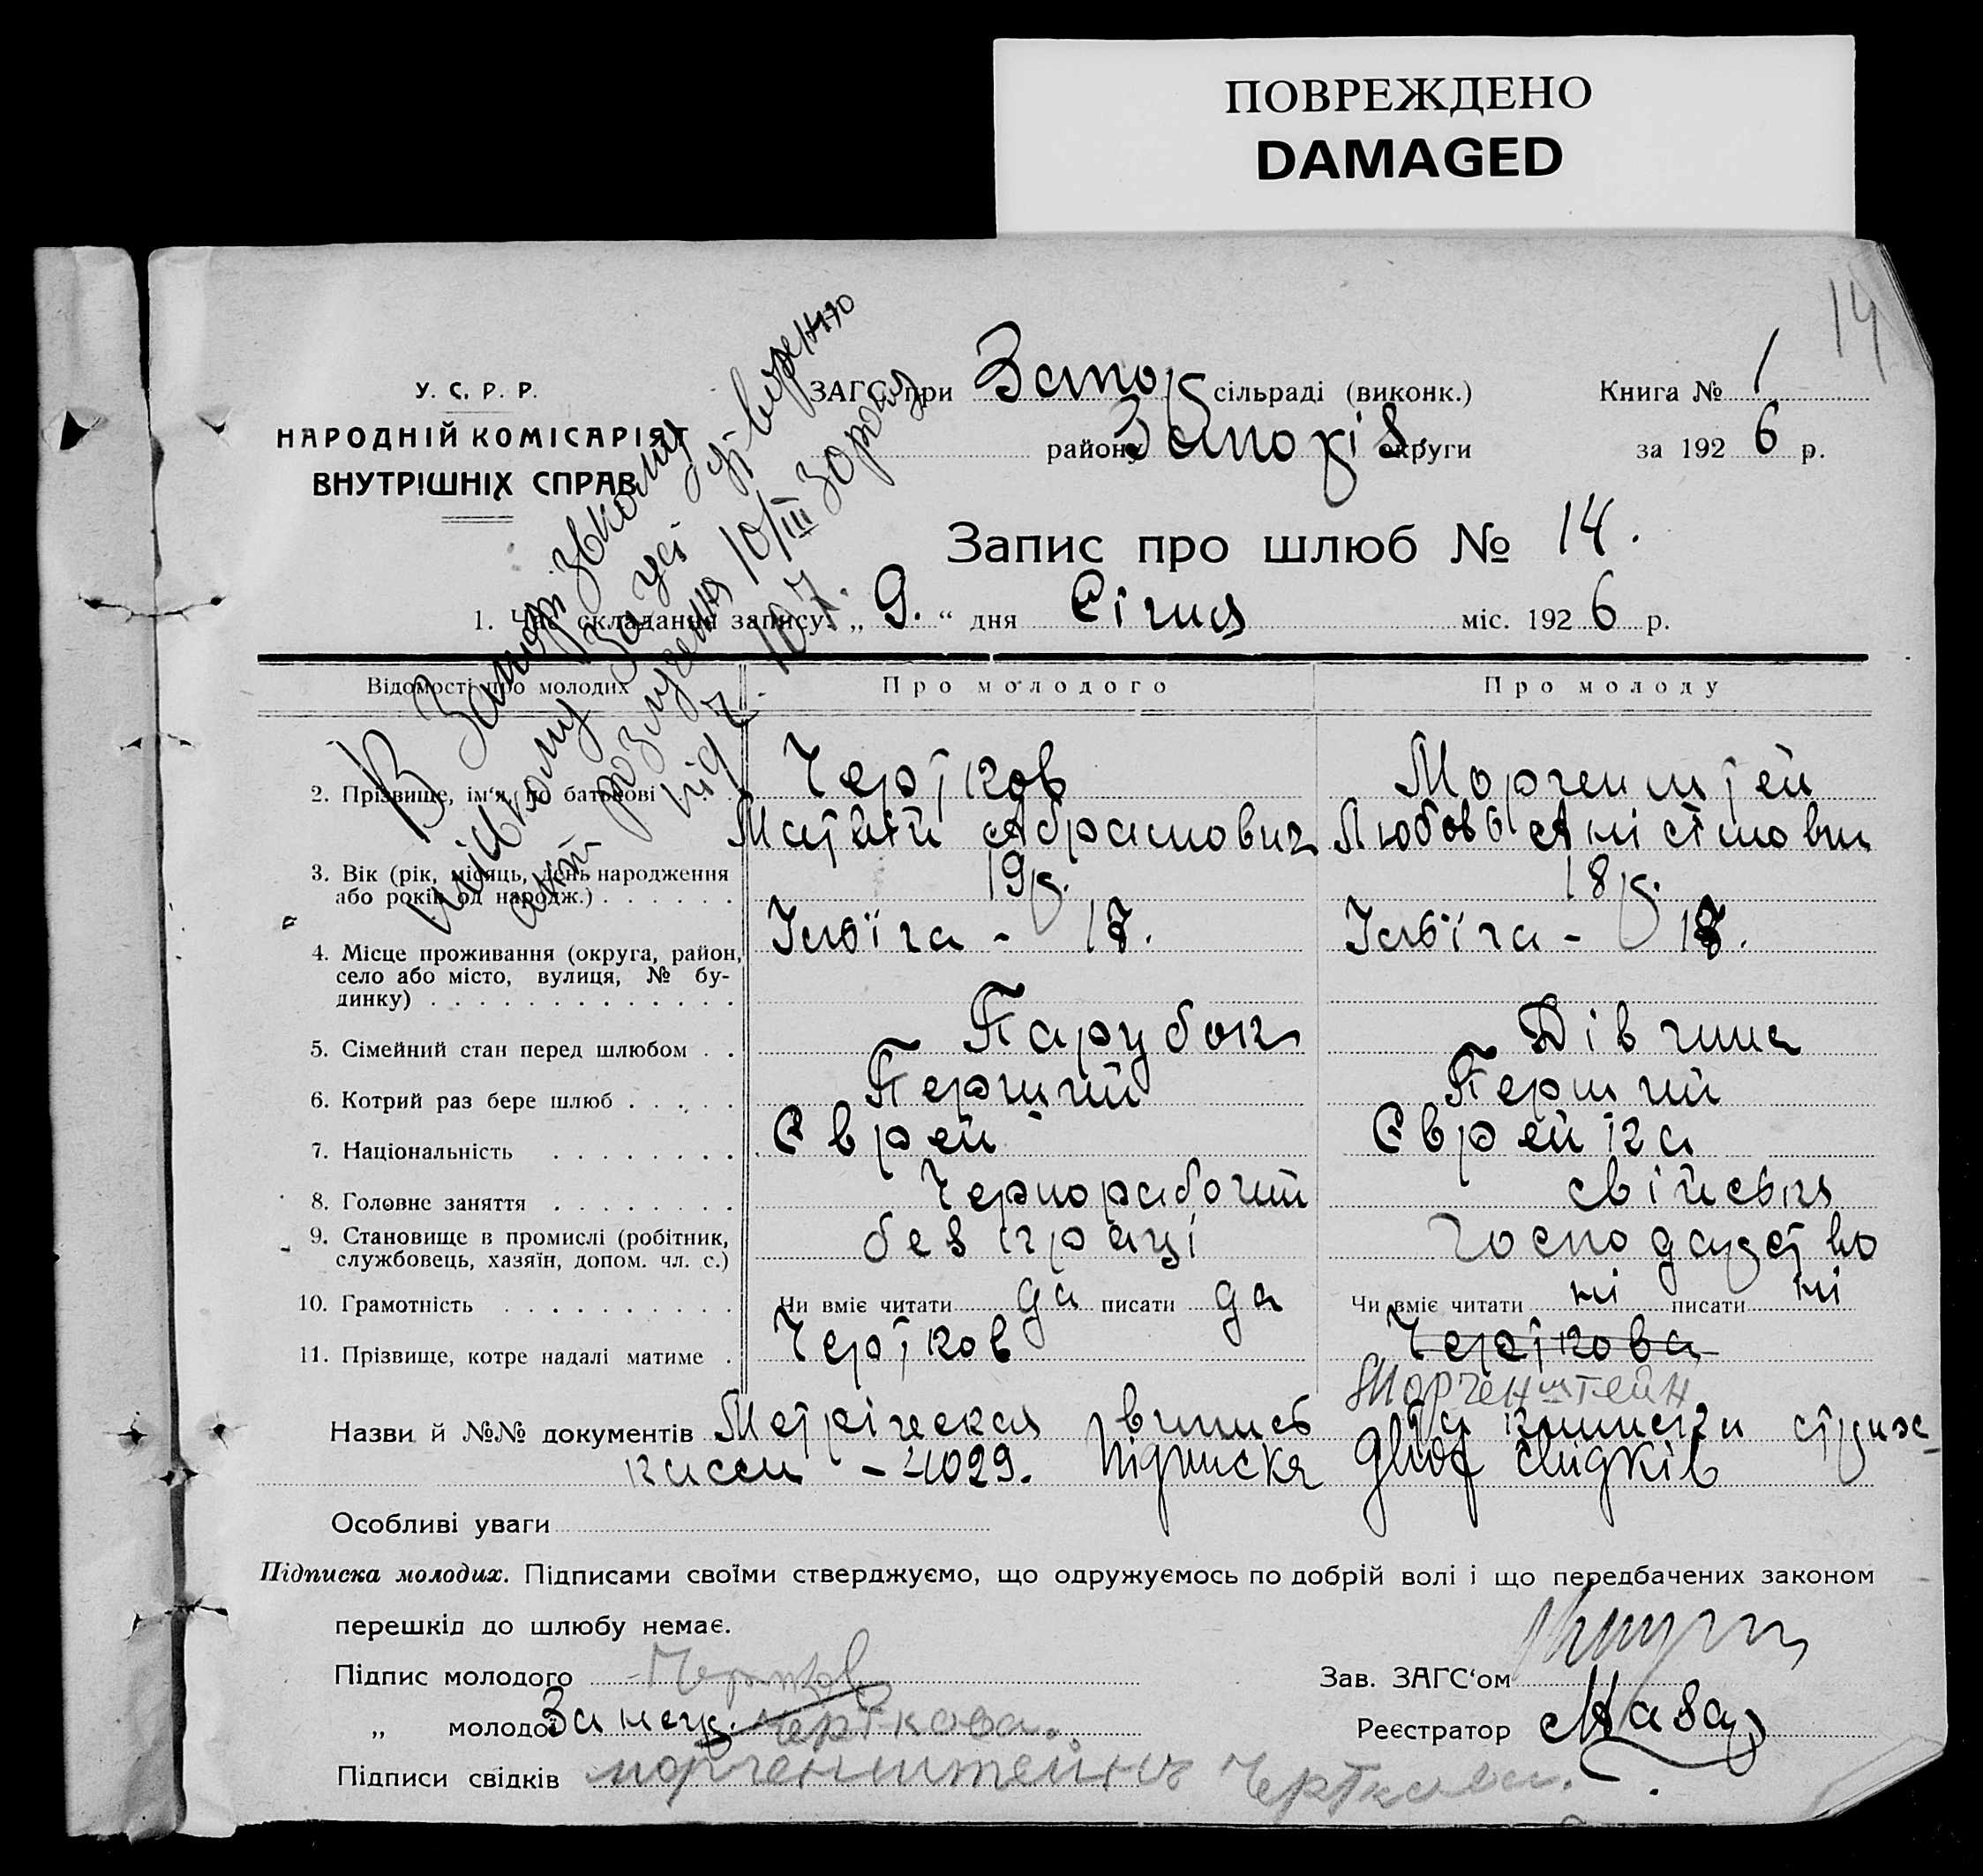 ПОВРЕЖДЕНО
DAMAGED
14
У. С. Р. Р.
НАРОДНІЙ КОМІСАРІЯТ
ВНУТРІШНІХ СПРАВ
ЗАГС при Запор сільраді (виконк.) Книга № 1
району Запоріз. округи за 1926 р.
Запис про шлюб № 14.
1. Час складання запису: „ 9. “ дня Січня міс. 1926 р.
В Запорізькому
акт розлучення 10/III
під ч. 107.
Відомості про молодих Про молодого Про молоду
2. Прізвище, ім'я, по батькові Чертков Моргенштейн
Матвій Абрамович Любовь
3. Вік (рік, місяць, день народження 19 р. 18 р.
або років од народж.)
4. Місце проживання (округа, район, - 17. - 18.
село або місто, вулиця, № бу-
динку)
5. Сімейний стан перед шлюбом Парубок Дівчина
6. Котрий раз бере шлюб Перший Перший
7. Національність Єврей Єврейка
8. Головне заняття Чернорабочий свійське
9. Становище в промислі (робітник, без праці господарство
службовець, хазяїн, допом. чл. с.)
10. Грамотність Чи вміє читати да писати да Чи вміє читати ні писати ні
11. Прізвище, котре надалі матиме Чертков Черткова
Моргенштейн
Назви й №№ документів Метрическая випись та книжка страх-
касси - 4029. Підписка двох свідків
Особливі уваги
Підписка молодих. Підписами своїми стверджуємо, що одружуємось по добрій волі і що передбачених законом
перешкід до шлюбу немає.
Підпис молодого Чертков Зав. ЗАГС'ом
„ молодої За негр. Черткова. Реєстратор
Підписи свідків моргенштейнъ Черткова.